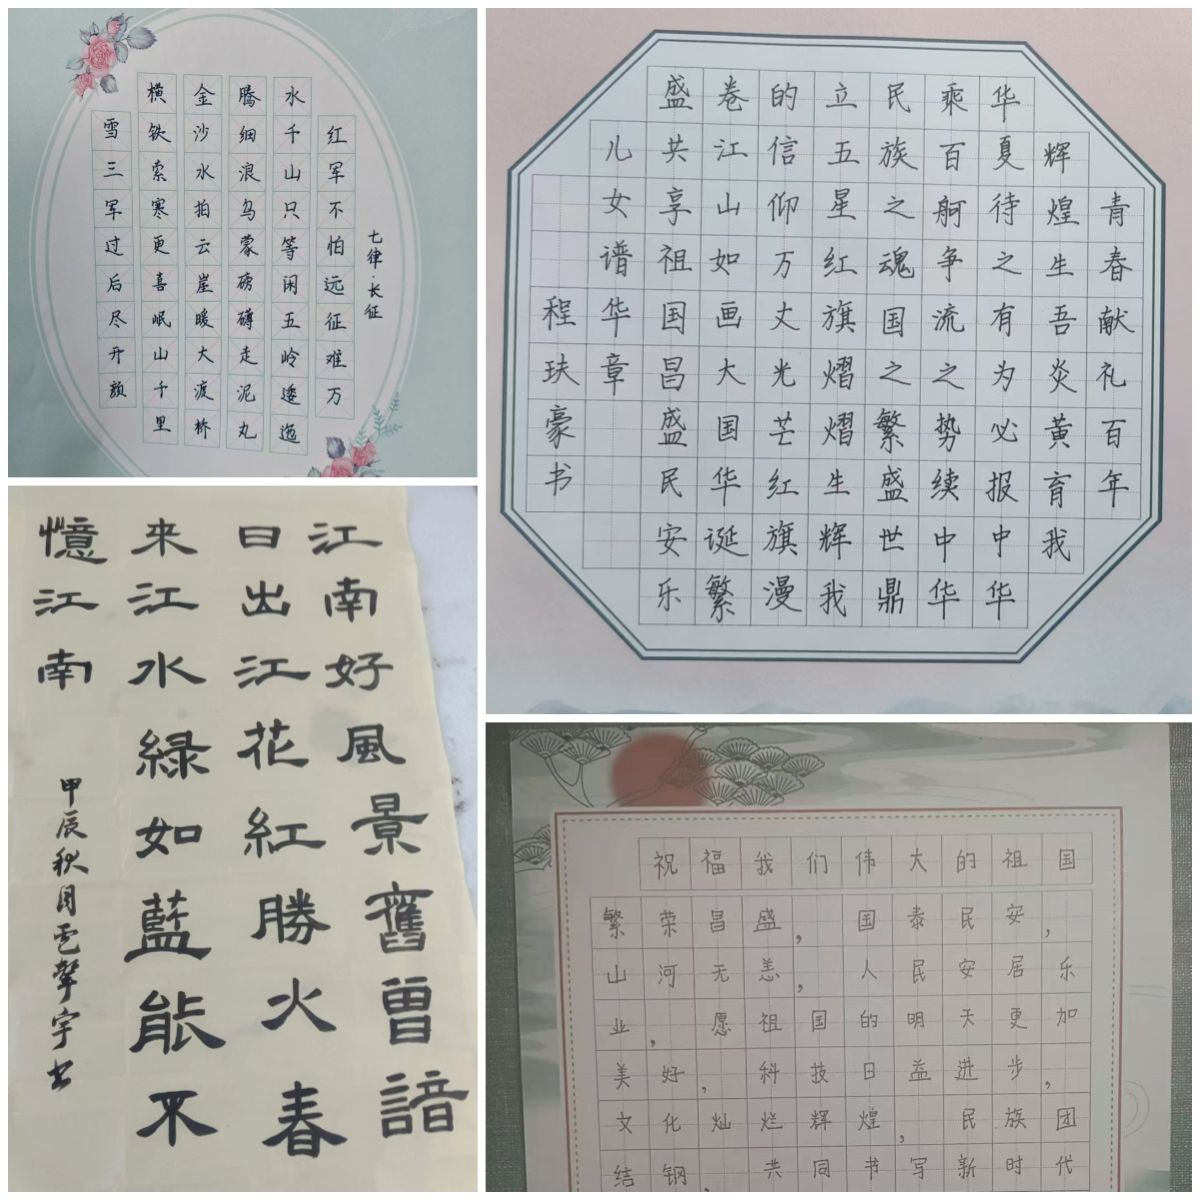 七律·长征
红军不怕远征难万
水千山只等闲五岭逶迤
腾细浪乌蒙磅礴走泥丸
金沙水拍云崖暖大渡桥
横铁索寒更喜岷山千里
雪三军过后尽开颜
青春献礼百年
辉煌生吾炎黄育我
华夏待之有为必报中华
乘百舸争流之势续中华
民族之魂国之繁盛世鼎
立五星红旗熠熠生辉我
的信仰万丈光芒红旗漫
卷江山如画大国华诞繁
盛共享祖国昌盛民安乐
儿女谱华章
程玞豪书
江南好風景舊曾諳
日出江花紅勝火春
來江水綠如藍能不
憶江南
甲辰秋月宇书
祝福我们伟大的祖国
繁荣昌盛，国泰民安，
山河无恙，人民安居乐
业，愿祖国的明天更加
美好，科技日益进步，
文化灿烂辉煌，民族团
结钢，共同书写新时代